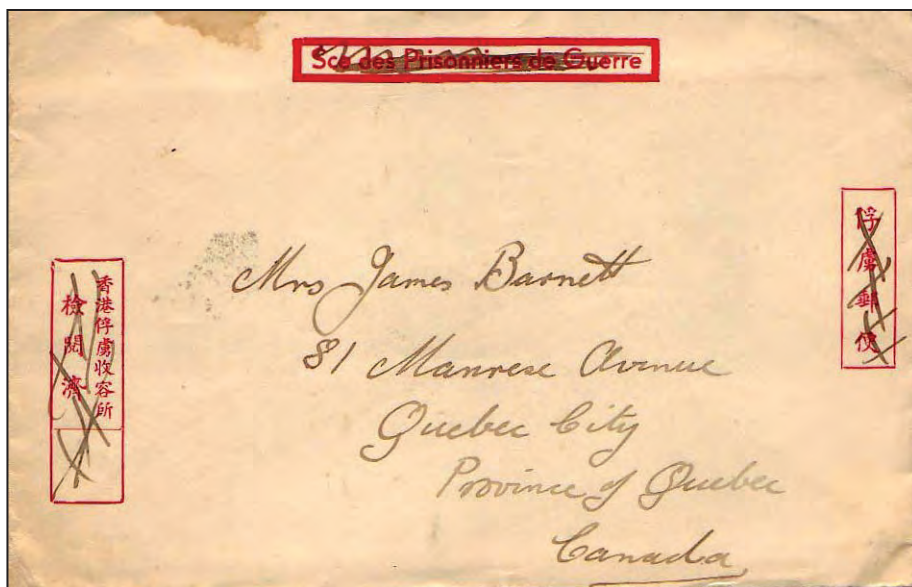 Sce des Prisonniers de Guerre
俘虜郵便
香港俘虜收容所
檢閲濟
Mrs James Barnett
81 Manrese Avenue
Quebec City
Province of Quebec
Canada